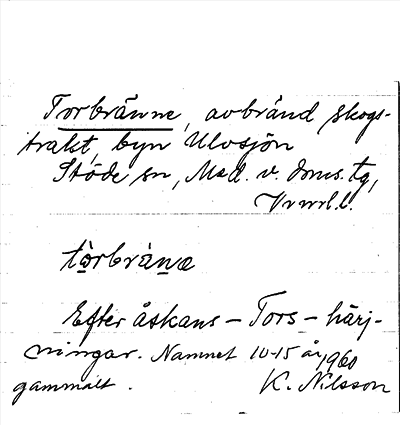 Torbränne, avbränd skogs-
trakt, byn Ulvsjön
Stöde sn, Med. v. doms. tg,
tòrbrànæ
Efter åskans – Tors – härj-
ningar. Namnet 10-15 år
gammalt. 1960
K. Nilsson